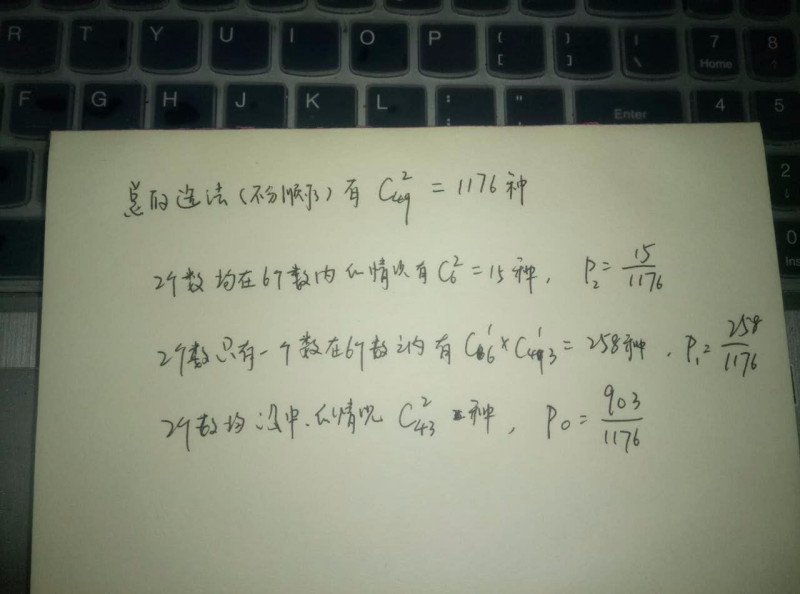 R T Y U I O P { [ } ] | \ 7 Home 8
F G H J K L : ; " ' Enter 4 5
2
0 Ins
总的选法(不分顺序)有 C₄₉² = 1176种
2个数均在6个数内的情况有 C₆² = 15种, P₂ = 15/1176
2个数只有一个数在6个数之内有 C₆¹ × C₄₃¹ = 258种, P₁ = 258/1176
2个数均没中的情况 C₄₃² 种, P₀ = 903/1176